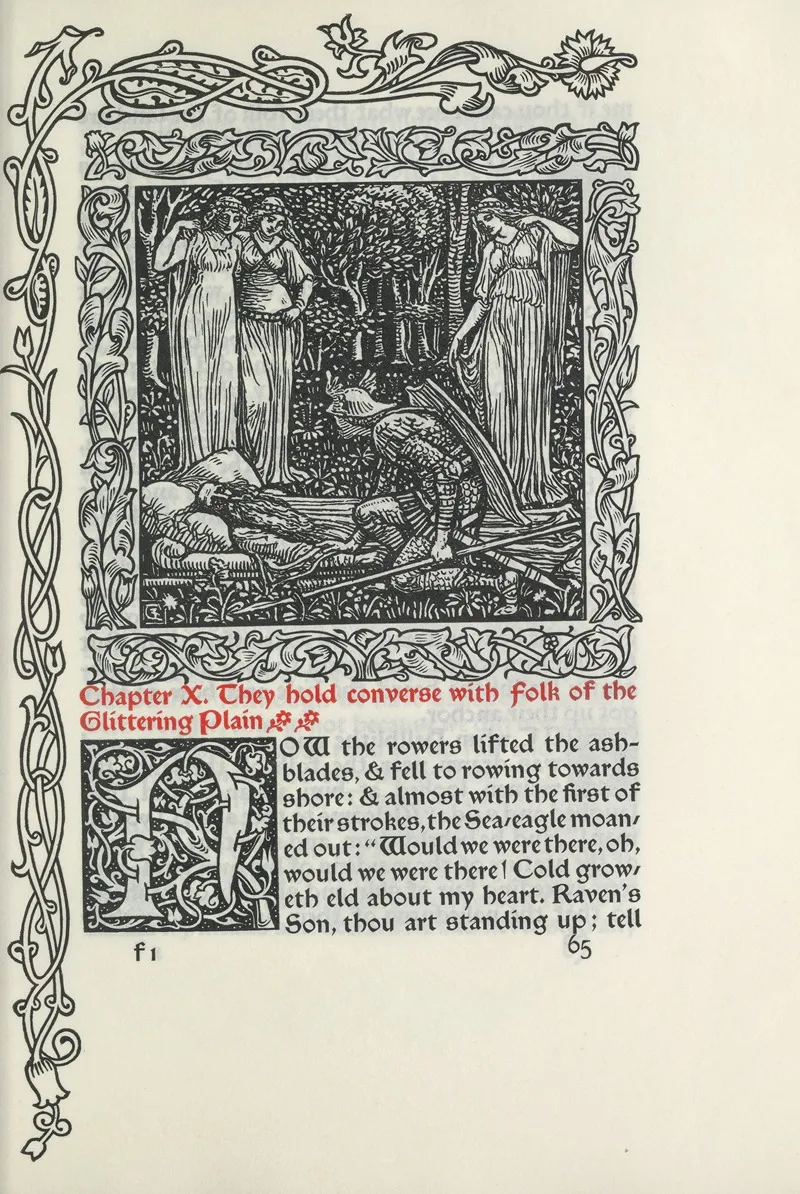 Chapter X. They hold converse with folk of the
Glittering Plain
NOW the rowers lifted the ash-
blades, & fell to rowing towards
shore: & almost with the first of
their strokes, the Sea-eagle moan-
ed out: "Would we were there, oh,
would we were there! Cold grow-
eth eld about my heart. Raven's
Son, thou art standing up; tell
f1
65